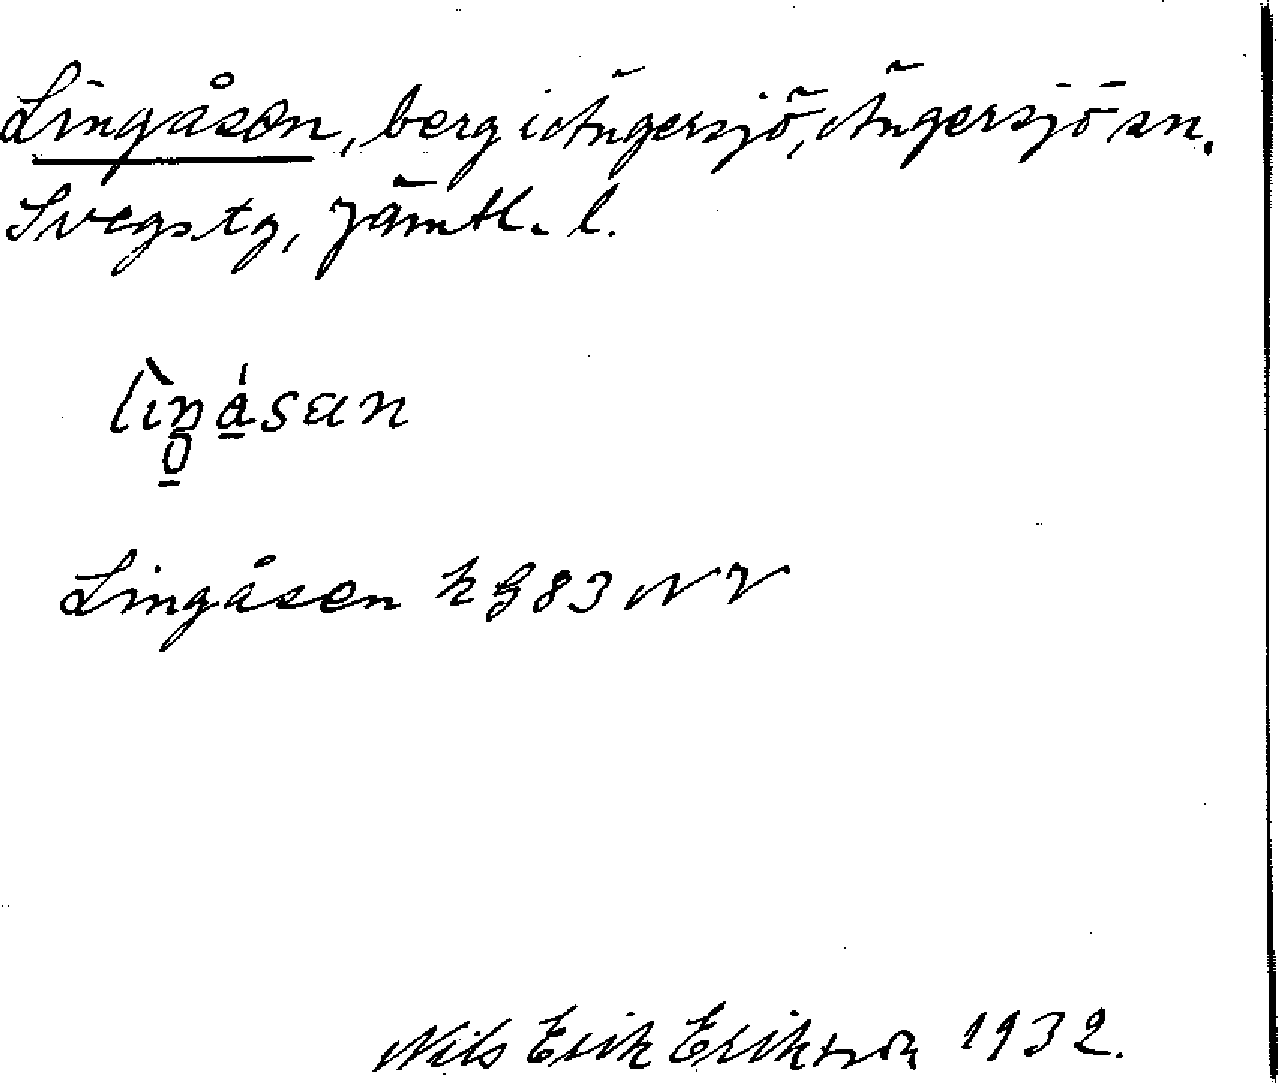 Lingåsen, berg i Ängersjö, Ängersjö sn.
Svegs tg, Jämtl. l.
Lingåsen k G 83 NV
Nils Erik Erikson 1932.